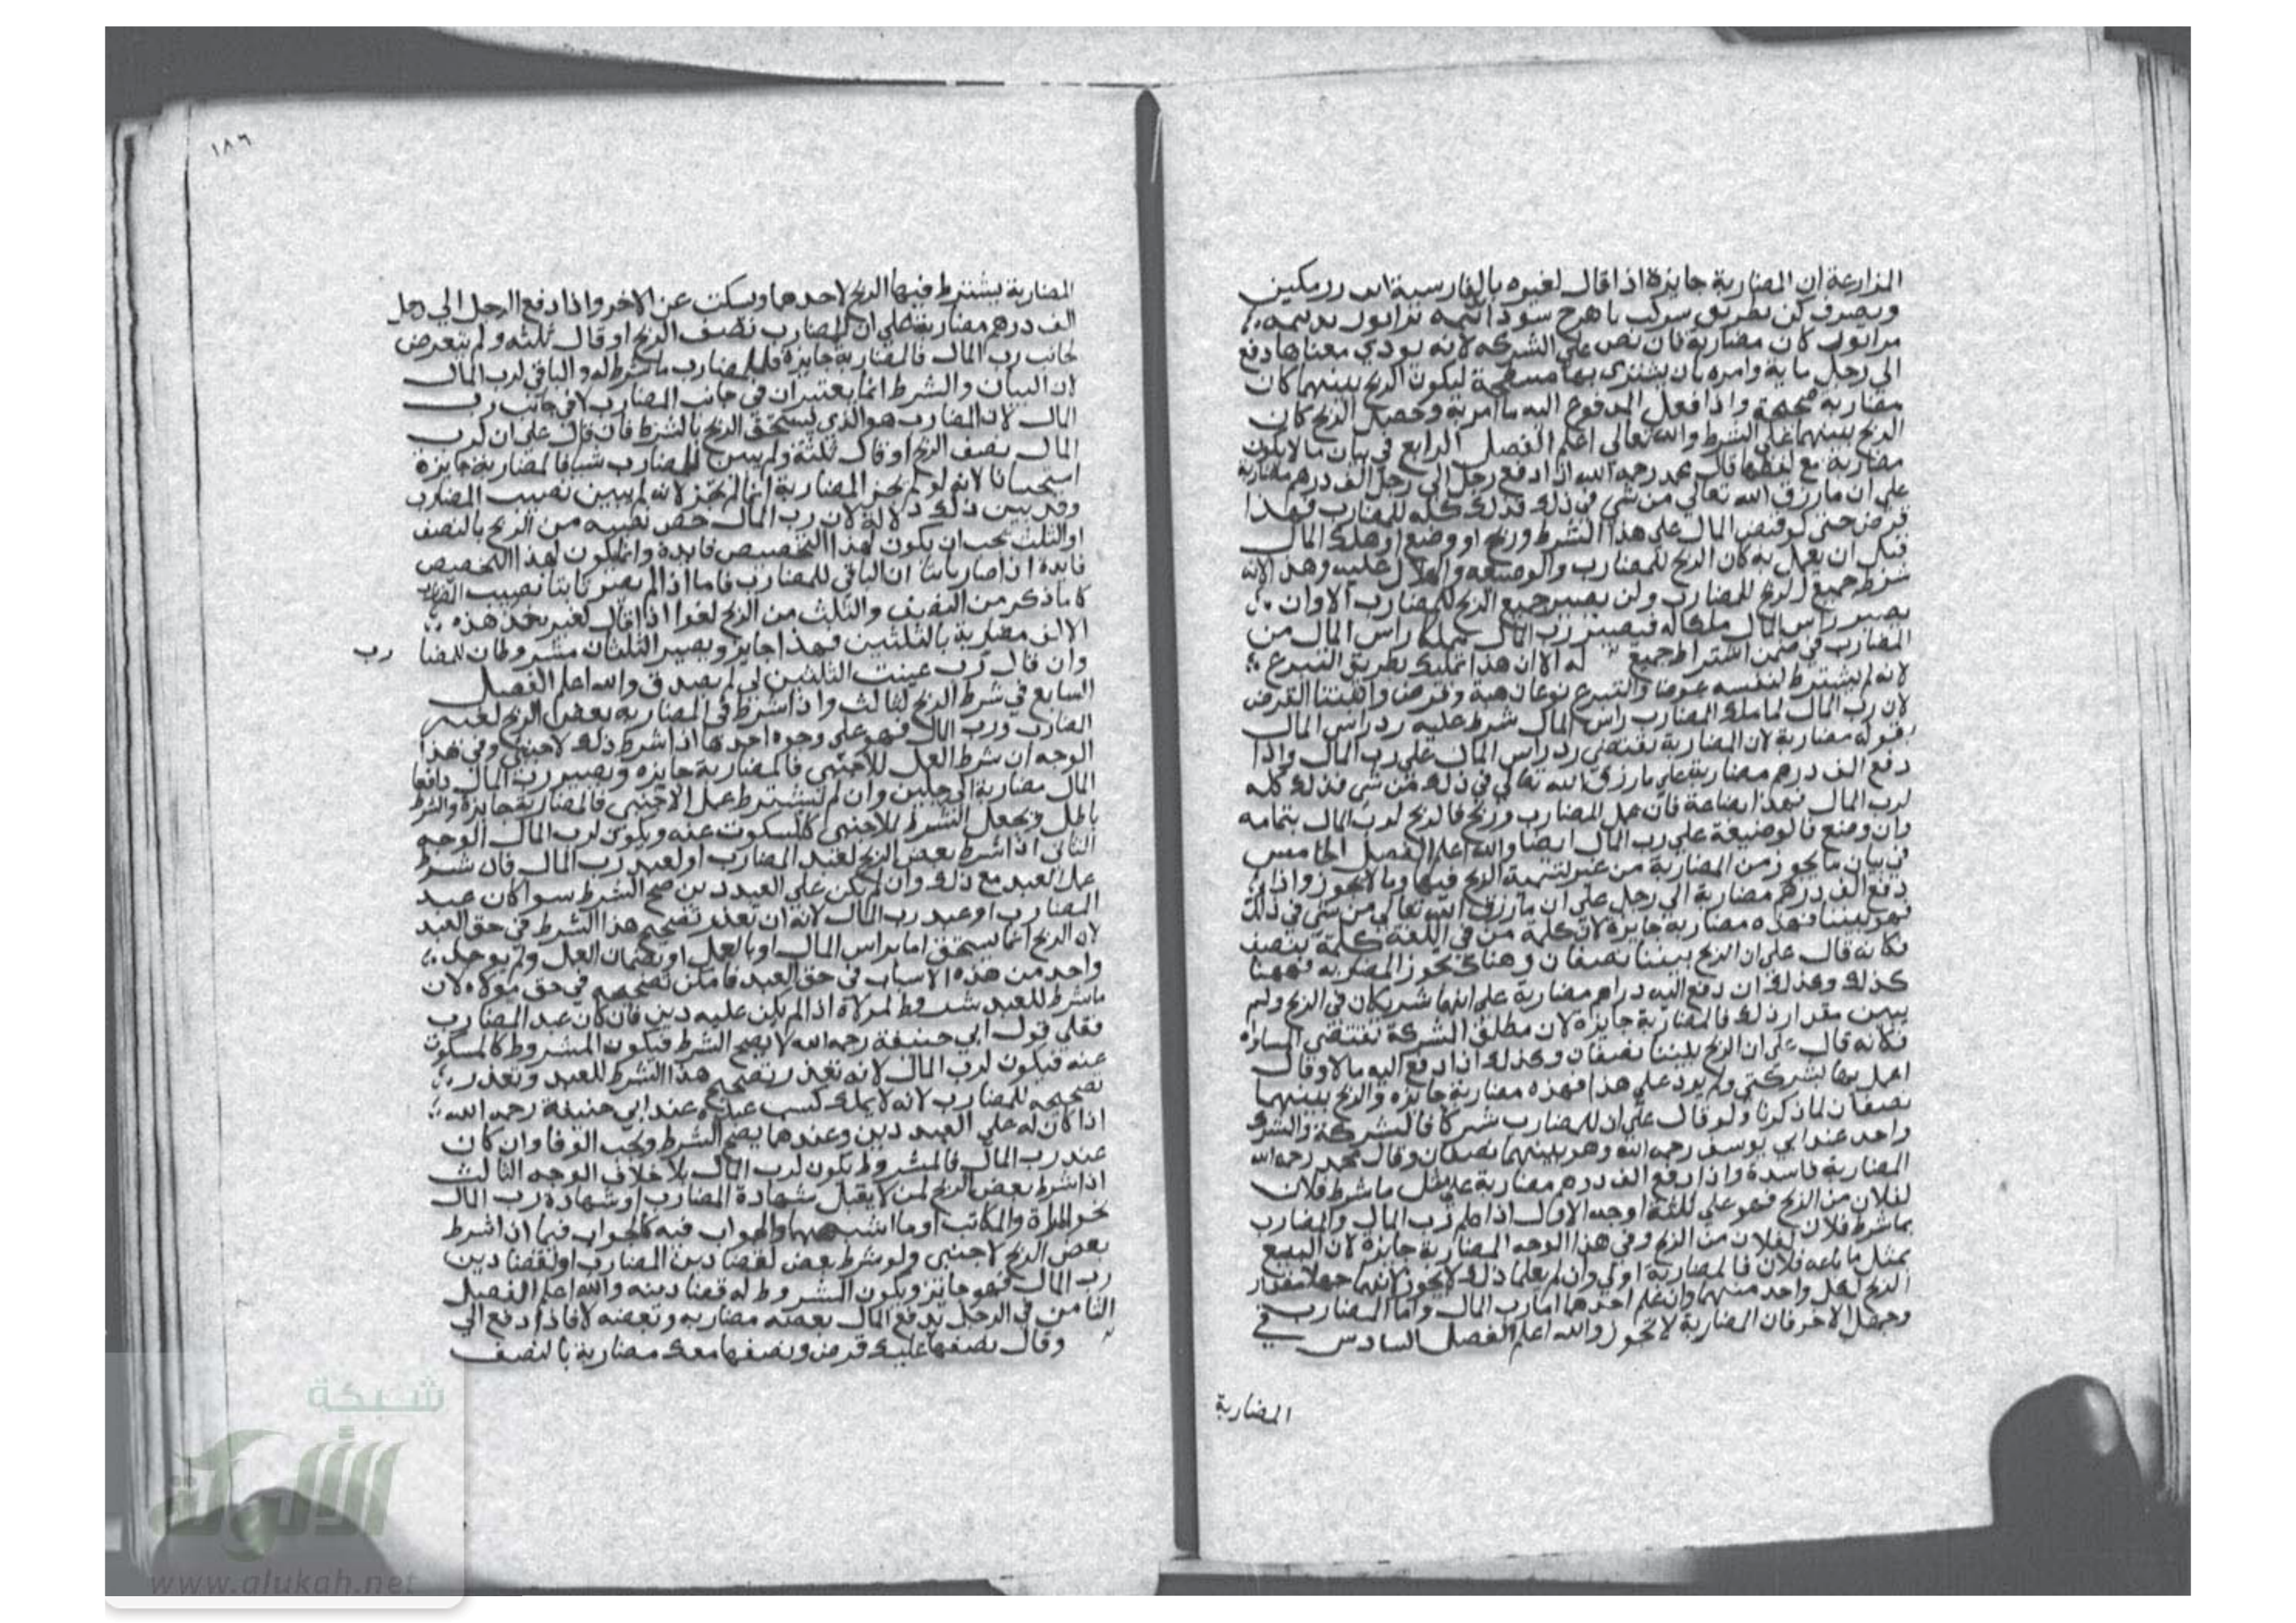 المزارعة ان المضاربة جايزة اذا قال لغيره بالفارسية اين زر مكين
ويصرف كن بطريق باهرج سود
كان مضاربة فان نص على الشركه لانه يودي معناها دفع
الي رجل ماية وامره بان يشتري بها ليكون الربح بينهما كان
مضاربه صحيحة واذا فعل المدفوع اليه ما امر به وحصل الربح كان
الربح بينهما على الشرط والله تعالى اعلم الفصل الرابع في بيان ما لا يكون
مضاربة مع لفظها قال محمد رحمه الله اذا دفع رجل الى رجل الف درهم مضاربة
على ان ما رزق الله تعالى من شي في ذلك فذلك كله للمضارب فهذا
قرض حتى لو قبض المال على هذا الشرط وربح او وضع او هلك المال
قبل ان يعمل به كان الربح للمضارب والوضيعه والهلاك عليه وهذا لانه
شرط جميع الربح للمضارب ولن يصير جميع الربح للمضارب الا وان
يصير راس المال ملكا له فيصير رب المال مملكا راس المال من
المضارب في ضمن اشتراط جميع له الا ان هذا تمليك بطريق التبرع
لانه لم يشترط لنفسه عوضا والتبرع نوعان هبة وقرض واثبتنا القرض
لان رب المال لما ملك المضارب راس المال شرط عليه رد راس المال
بقوله مضاربة لان المضاربة تقتضي رد راس المال على رب المال واذا
دفع الف درهم مضاربة على ما رزق الله تعالى في ذلك من شي فذلك كله
لرب المال فهذا بضاعة فان عمل المضارب وربح فالربح لرب المال بتمامه
وان وضع فالوضيعة على رب المال ايضا والله اعلم الفصل الخامس
في بيان ما يجوز من المضاربة من غير تسمية الربح فيها وما لا يجوز واذا
دفع الف درهم مضاربة الى رجل على ان ما رزق الله تعالى من شي في ذلك
فهو بيننا فهذه مضاربة جايزة لان كلمة بين في اللغة كلمة تنصيف
فكانه قال على ان الربح بيننا نصفان وهناك تجوز المضاربه فههنا
كذلك وكذلك ان دفع اليه دراهم مضاربة على انهما شريكان في الربح ولم
يبين مقدار ذلك فالمضاربة جايزة لان مطلق الشركة تقتضي المساواة
فكانه قال على ان الربح بيننا نصفان وكذلك اذا دفع اليه مالا وقال
اعمل بها بشركتي ولم يزد على هذا فهذه مضاربة جايزه والربح بينهما
نصفان لما ذكرنا ولو قال على ان للمضارب شركا فالشركة والشرك
واحد عند ابي يوسف رحمه الله وهو بينهما نصفان وقال محمد رحمه الله
المضاربة فاسدة واذا دفع الف درهم مضاربة على مثل ما شرط فلان
لفلان من الربح فهو على ثلثة اوجه الاول اذا علم رب المال والمضارب
بما شرط فلان لفلان من الربح وفي هذا الوجه المضاربة جايزة لان البيع
بمثل ما باعه فلان فالمضاربة اولي وان لم يعلما ذلك لا يجوز لانهما جهلا مقدار
الربح لكل واحد منهما وان علم احدهما اما رب المال واما المضارب
وجهل الاخر فان المضاربة لا تجوز والله اعلم الفصل السادس في
المضاربة
١٨٦
المضاربة يشترط فيها الربح لاحدهما ويسكت عن الاخر واذا دفع الرجل الي رجل
الف درهم مضاربة على ان للمضارب نصف الربح او قال ثلثه ولم يتعرض
لجانب رب المال فالمضاربة جايزة فللمضارب ما شرط له والباقي لرب المال
لان البيان والشرط انما يعتبران في جانب المضارب لا في جانب رب
المال لان المضارب هو الذي يستحق الربح بالشرط فان قال على ان لرب
المال نصف الربح او قال ثلثه ولم يبين للمضارب شيا فالمضاربة جايزة
استحسانا لانه لو لم يجز المضاربة انما لم تجز لانه لم يبين نصيب المضارب
وقد بين ذلك دلالة لان رب المال خص نصيبه من الربح بالنصف
او الثلث يجب ان يكون لهذا التخصيص فايدة وانما يكون لهذا التخصيص
فايدة اذا صار بيانا ان الباقي للمضارب فاما اذا لم يصر ثابتا نصيب المضارب
كان ما ذكر من النصف والثلث من الربح لغوا اذا قال لغيره خذ هذه
الالف مضاربة بالثلثين فهذا جايز ويصير الثلثان مشروطان للمضا رب
وان قال رب عينت الثلثين لي لم يصدق والله اعلم الفصل
السابع في شرط الربح لثالث واذا شرط في المضاربه بعض الربح لغير
المضارب ورب المال فهو على وجوه احدها اذا شرط ذلك لاجنبي وفي هذا
الوجه ان شرط العمل للاجنبي فالمضاربة جايزه ويصير رب المال دافعا
المال مضاربة الى رجلين وان لم يشترط عمل الاجنبي فالمضاربة جايزة والشرط
باطل ويجعل الشرط للاجنبي كالسكوت عنه ويكون لرب المال الوجه
الثاني اذا شرط بعض الربح لعبد المضارب او لعبد رب المال فان شرط
عمل العبد مع ذلك وان لم يكن على العبد دين صح الشرط سوا كان عبد
المضارب او عبد رب المال لانه ان تعذر تصحيح هذا الشرط في حق العبد
لان الربح انما يستحق اما براس المال او بالعمل او بضمان العمل ولم يوجد
واحد من هذه الاسباب في حق العبد فامكن تصحيحه في حق مولاه لان
ما شرط للعبد شرط لمولاه اذا لم يكن عليه دين فان كان عبد المضارب
فعلى قول ابي حنيفة رحمه الله لا يصح الشرط فيكون المشروط كالمسكوت
عنه فيكون لرب المال لانه تعذر تصحيح هذا الشرط للعبد وتعذر
تصحيحه للمضارب لانه لا يملك كسب عبده عند ابي حنيفة رحمه الله
اذا كان له على العبد دين وعندهما يصح الشرط ويجب الوفا وان كان
عبد رب المال فالمشروط يكون لرب المال بلا خلاف الوجه الثالث
اذا شرط بعض الربح لمن لا يقبل شهادة المضارب او شهادة رب المال
نحو المراة والمكاتب او ما اشبههما والجواب فيه كالجواب فيما اذا شرط
بعض الربح لاجنبي ولو شرط بعض لقضا دين المضارب او لقضا دين
رب المال فهو جايز ويكون المشروط له قضا دينه والله اعلم الفصل
الثامن في الرجل يدفع المال بعضه مضاربه وبعضه لا فاذا دفع الي
وقال نصفها عليك قرض ونصفها معك مضاربة بالنصف
شبكة
الألوكة
www.alukah.net